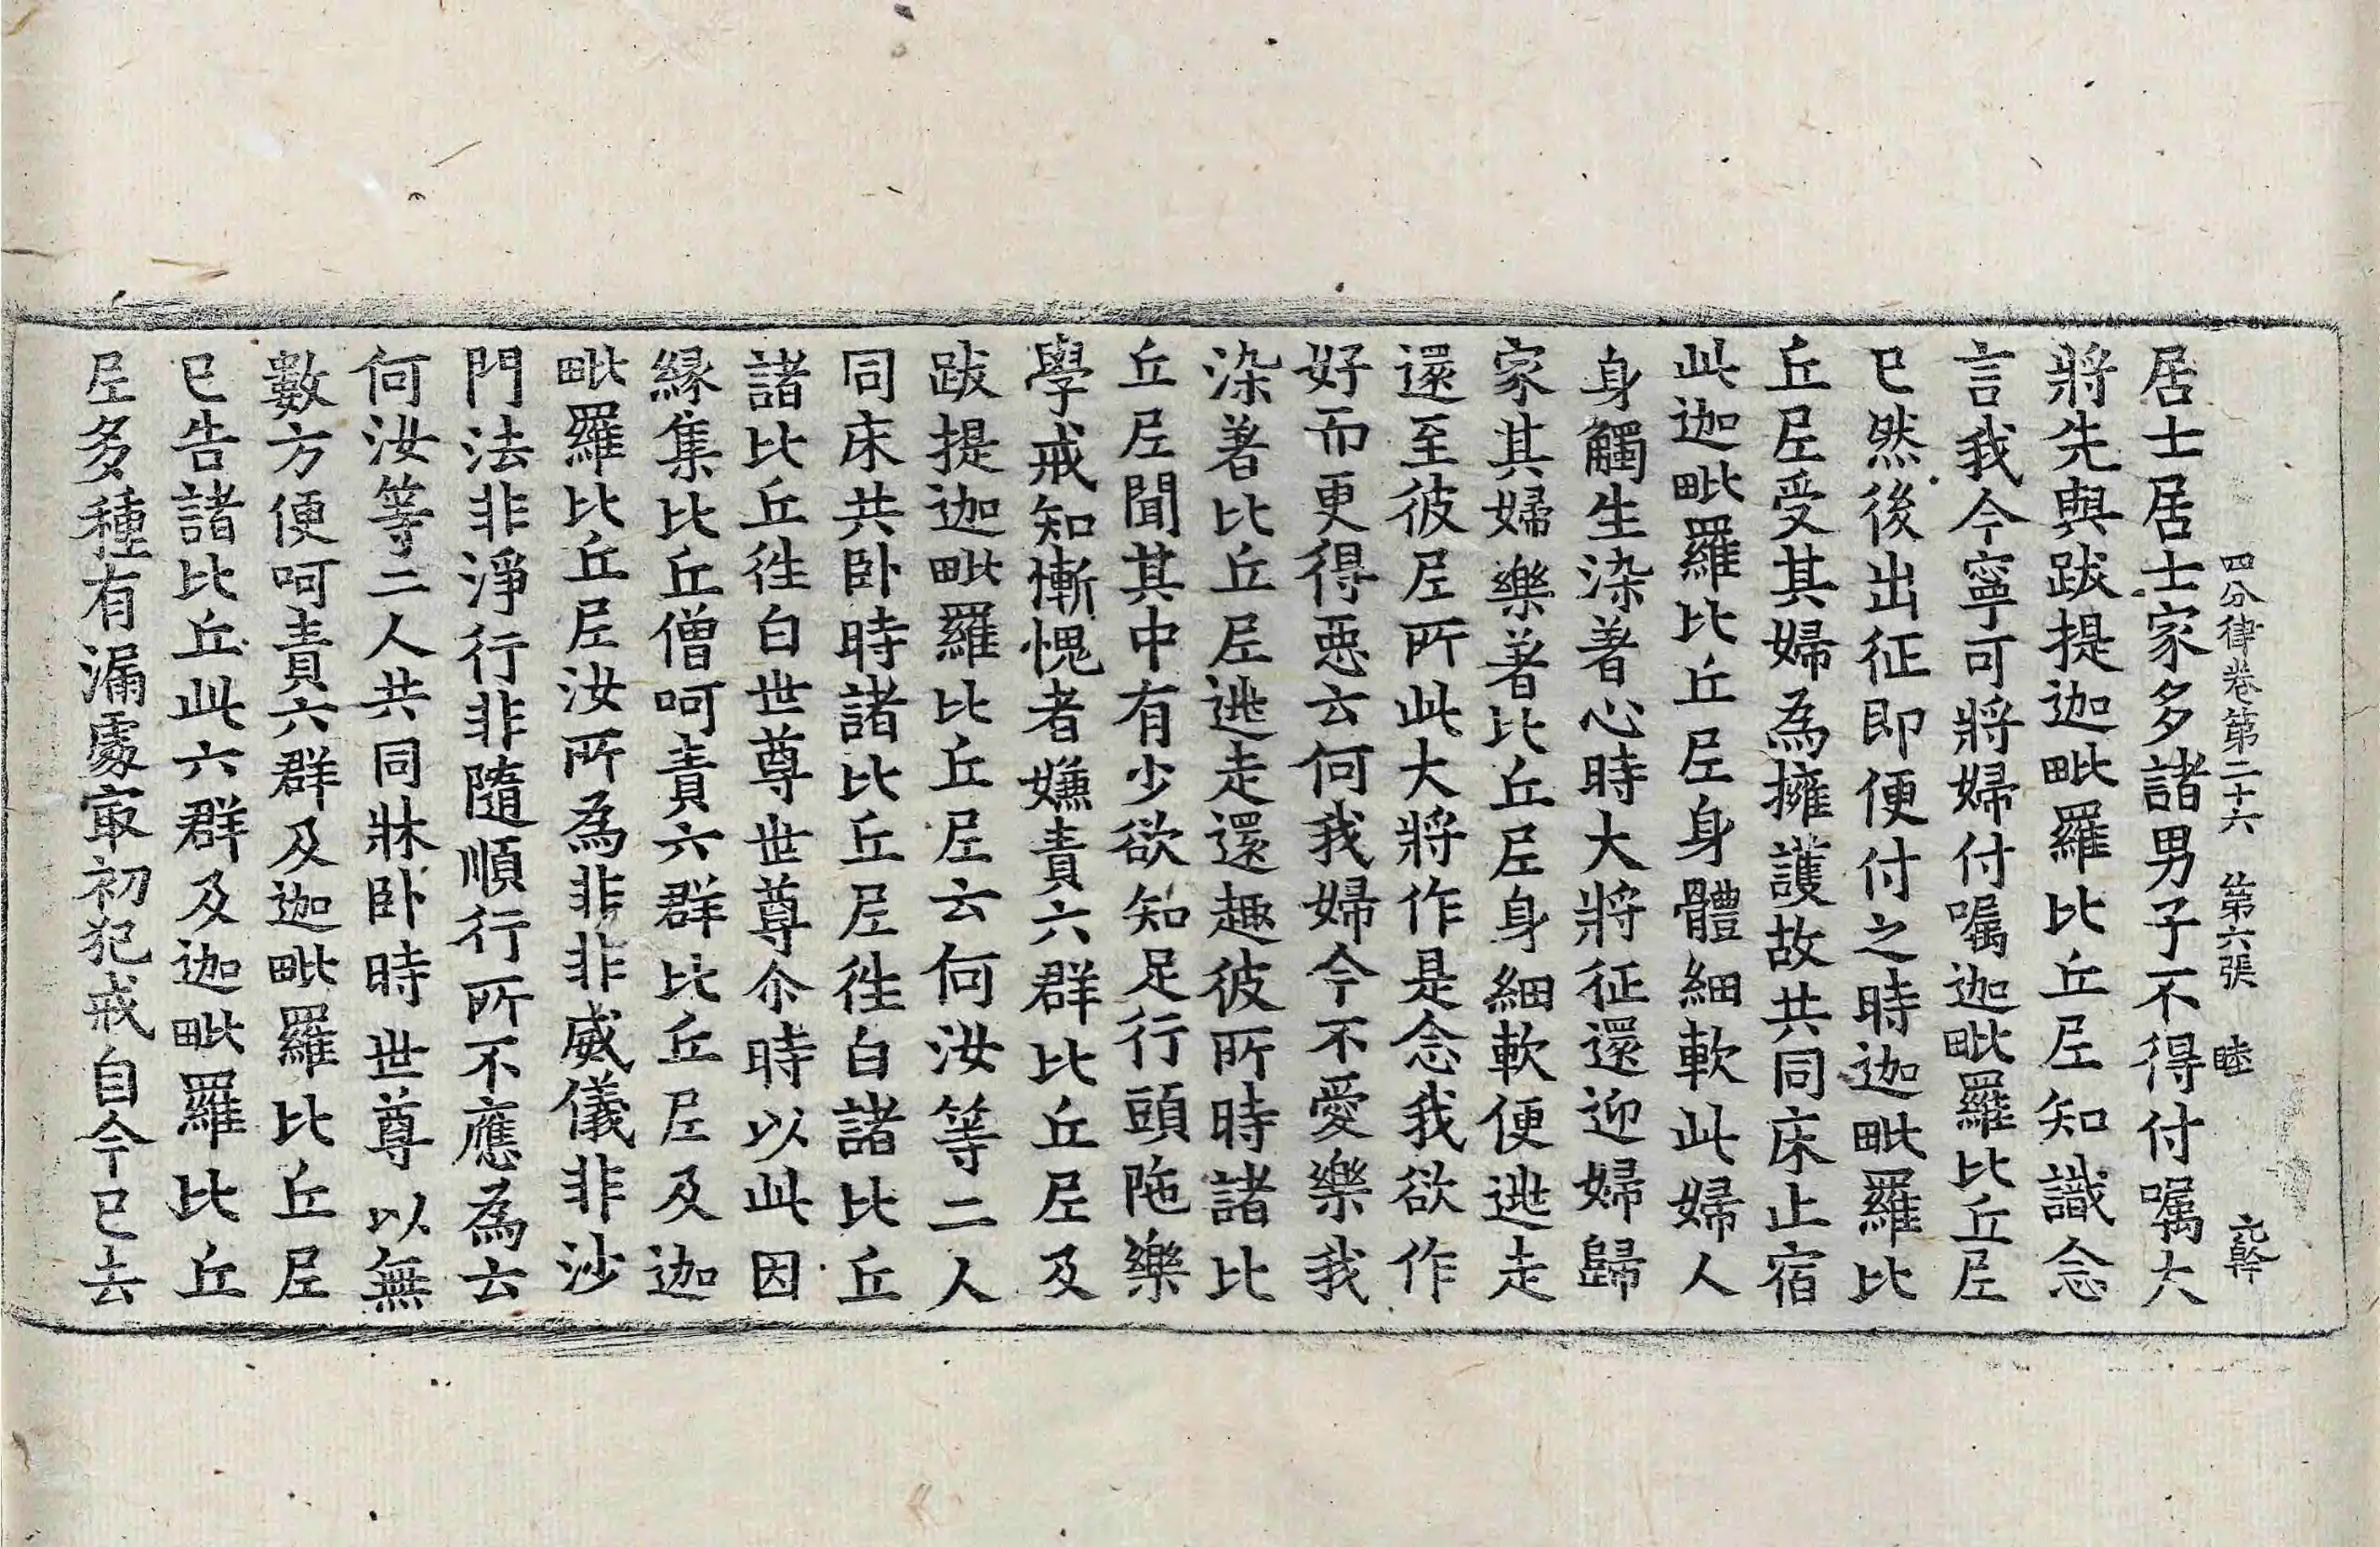 四分律卷第二十六 第六張 睦
居士居士家多諸男子不得付囑大
將先與跋提迦毗羅比丘尼知識念
言我今寧可將婦付囑迦毗羅比丘尼
已然後出征即便付之時迦毗羅比
丘尼受其婦為擁護故共同床止宿
此迦毗羅比丘尼身體細軟此婦人
身觸生染著心時大將征還迎婦歸
家其婦樂著比丘尼身細軟便逃走
還至彼尼所此大將作是念我欲作
好而更得惡云何我婦今不愛樂我
染著比丘尼逃走還趣彼所時諸比
丘尼聞其中有少欲知足行頭陁樂
學戒知慚愧者嫌責六群比丘尼及
跋提迦毗羅比丘尼云何汝等二人
同床共卧時諸比丘尼往白諸比丘
諸比丘往白世尊世尊尒時以此因
緣集比丘僧呵責六群比丘尼及迦
毗羅比丘尼汝所為非非威儀非沙
門法非淨行非隨順行所不應為云
何汝等二人共同牀卧時世尊以無
數方便呵責六群及迦毗羅比丘尼
已告諸比丘此六群及迦毗羅比丘
尼多種有漏處㝡初犯戒自今已去